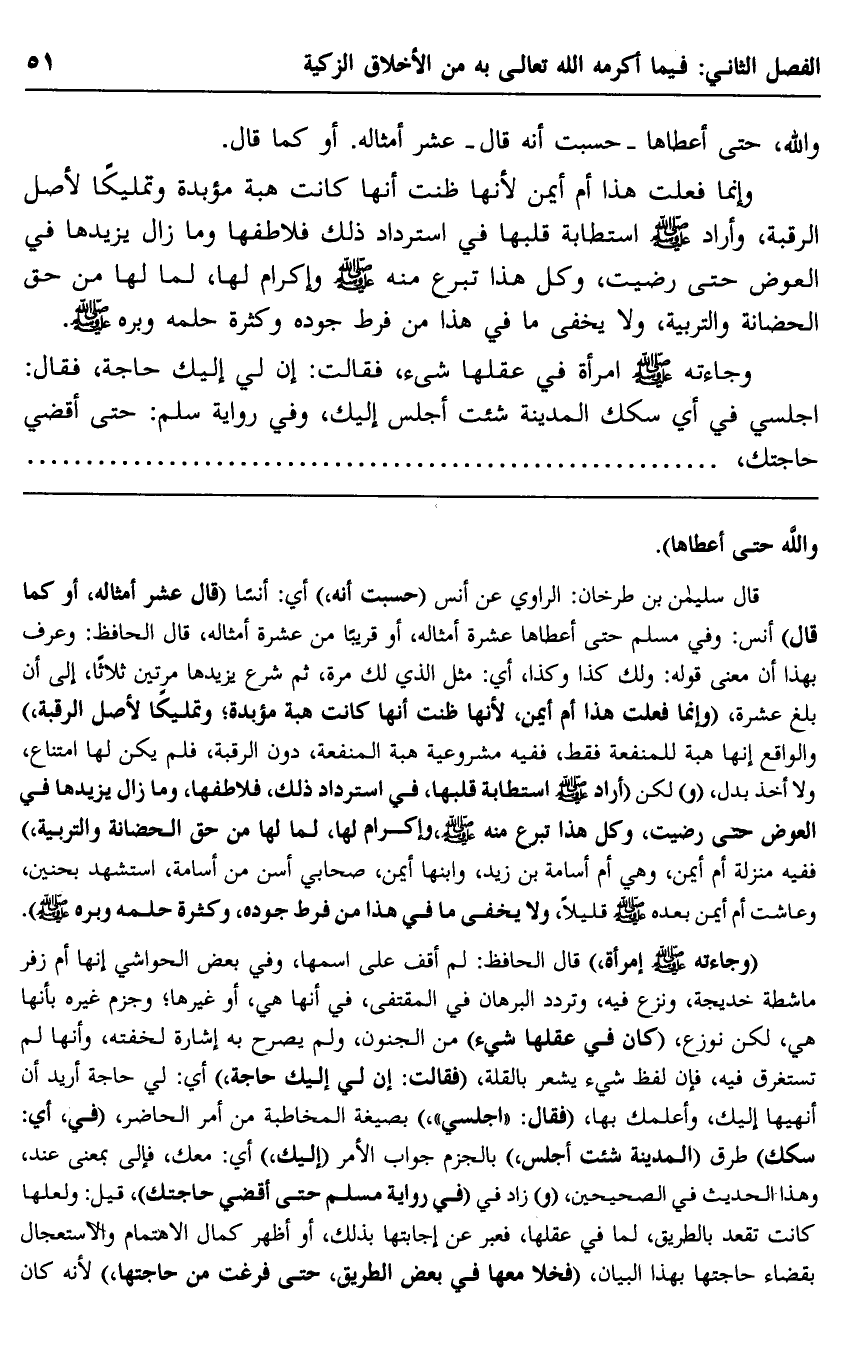 الفصل الثاني: فيما أكرمه الله تعالى به من الأخلاق الزكية ٥١
والله، حتى أعطاها ـ حسبت أنه قال ـ عشر أمثاله. أو كما قال.
وإنما فعلت هذا أم أيمن لأنها ظنت أنها كانت هبة مؤبدة وتمليكًا لأصل
الرقبة، وأراد ﷺ استطابة قلبها في استرداد ذلك فلاطفها وما زال يزيدها في
العوض حتى رضيت، وكل هذا تبرع منه ﷺ وإكرام لها، لما لها من حق
الحضانة والتربية، ولا يخفى ما في هذا من فرط جوده وكثرة حلمه وبره ﷺ.
وجاءته ﷺ امرأة في عقلها شىء، فقالت: إن لي إليك حاجة، فقال:
اجلسي في أي سكك المدينة شئت أجلس إليك، وفي رواية سلم: حتى أقضي
حاجتك، ............................................................
واللَّه حتى أعطاها).
قال سليمٰن بن طرخان: الراوي عن أنس (حسبت أنه،) أي: أنسًا (قال عشر أمثاله، أو كما
قال) أنس: وفي مسلم حتى أعطاها عشرة أمثاله، أو قريبًا من عشرة أمثاله، قال الحافظ: وعرف
بهذا أن معنى قوله: ولك كذا وكذا، أي: مثل الذي لك مرة، ثم شرع يزيدها مرتين ثلاثًا، إلى أن
بلغ عشرة، (وإنما فعلت هذا أم أيمن، لأنها ظنت أنها كانت هبة مؤبدة؛ وتمليكًا لأصل الرقبة،)
والواقع إنها هبة للمنفعة فقط، ففيه مشروعية هبة المنفعة، دون الرقبة، فلم يكن لها امتناع،
ولا أخذ بدل، (و) لكن (أراد ﷺ استطابة قلبها، في استرداد ذلك، فلاطفها، وما زال يزيدها في
العوض حتى رضيت، وكل هذا تبرع منه ﷺ،وإكرام لها، لما لها من حق الحضانة والتربية،)
ففيه منزلة أم أيمن، وهي أم أسامة بن زيد، وابنها أيمن، صحابي أسن من أسامة، استشهد بحنين،
وعاشت أم أيمن بعده ﷺ قليلاً، ولا يخفى ما في هذا من فرط جوده، وكثرة حلمه وبره ﷺ).
(وجاءته ﷺ إمرأة،) قال الحافظ: لم أقف على اسمها، وفي بعض الحواشي إنها أم زفر
ماشطة خديجة، ونزع فيه، وتردد البرهان في المقتفى، في أنها هي، أو غيرها؛ وجزم غيره بأنها
هي، لكن نوزع، (كان في عقلها شيء) من الجنون، ولم يصرح به إشارة لخفته، وأنها لم
تستغرق فيه، فإن لفظ شيء يشعر بالقلة، (فقالت: إن لي إليك حاجة،) أي: لي حاجة أريد أن
أنهيها إليك، وأعلمك بها، (فقال: «اجلسي»،) بصيغة المخاطبة من أمر الحاضر، (في، أي:
سكك) طرق (المدينة شئت أجلس،) بالجزم جواب الأمر (إليك،) أي: معك، فإلى بمعنى عند،
وهذا الحديث في الصحيحين، (و) زاد في (في رواية مسلم حتى أقضي حاجتك)، قيل: ولعلها
كانت تقعد بالطريق، لما في عقلها، فعبر عن إجابتها بذلك، أو أظهر كمال الاهتمام والاستعجال
بقضاء حاجتها بهذا البيان، (فخلا معها في بعض الطريق، حتى فرغت من حاجتها،) لأنه كان